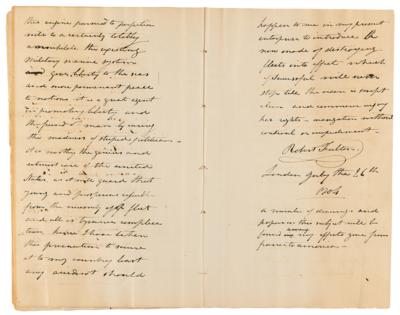 this engine pursued to perfection
will to a certainty totally
annihilate the existing
Military marine system
and give liberty to the seas
and more permanent peace
to nations it is a great agent
in promoting liberty and
the friend of man by curing
the madness of stupid
it is worthy the genius and
interest of the united
States, and will guard that
young and prosperous republic
from the necessity of fleets
and all its tyranic complica
tion hence I have taken
this precaution to secure
it to my country least
any accident should
happen to me in my present
enterprise to introduce the
new mode of destroying
fleets into effect which
if successful will never
stop till the ocean is swept
clean and commerce enjoy
her rights navigation without
control or impediment.
Robert Fulton
London July the 26th
1804
a number of drawings and
papers on this subject will be
found among my effects gone from
paris to america